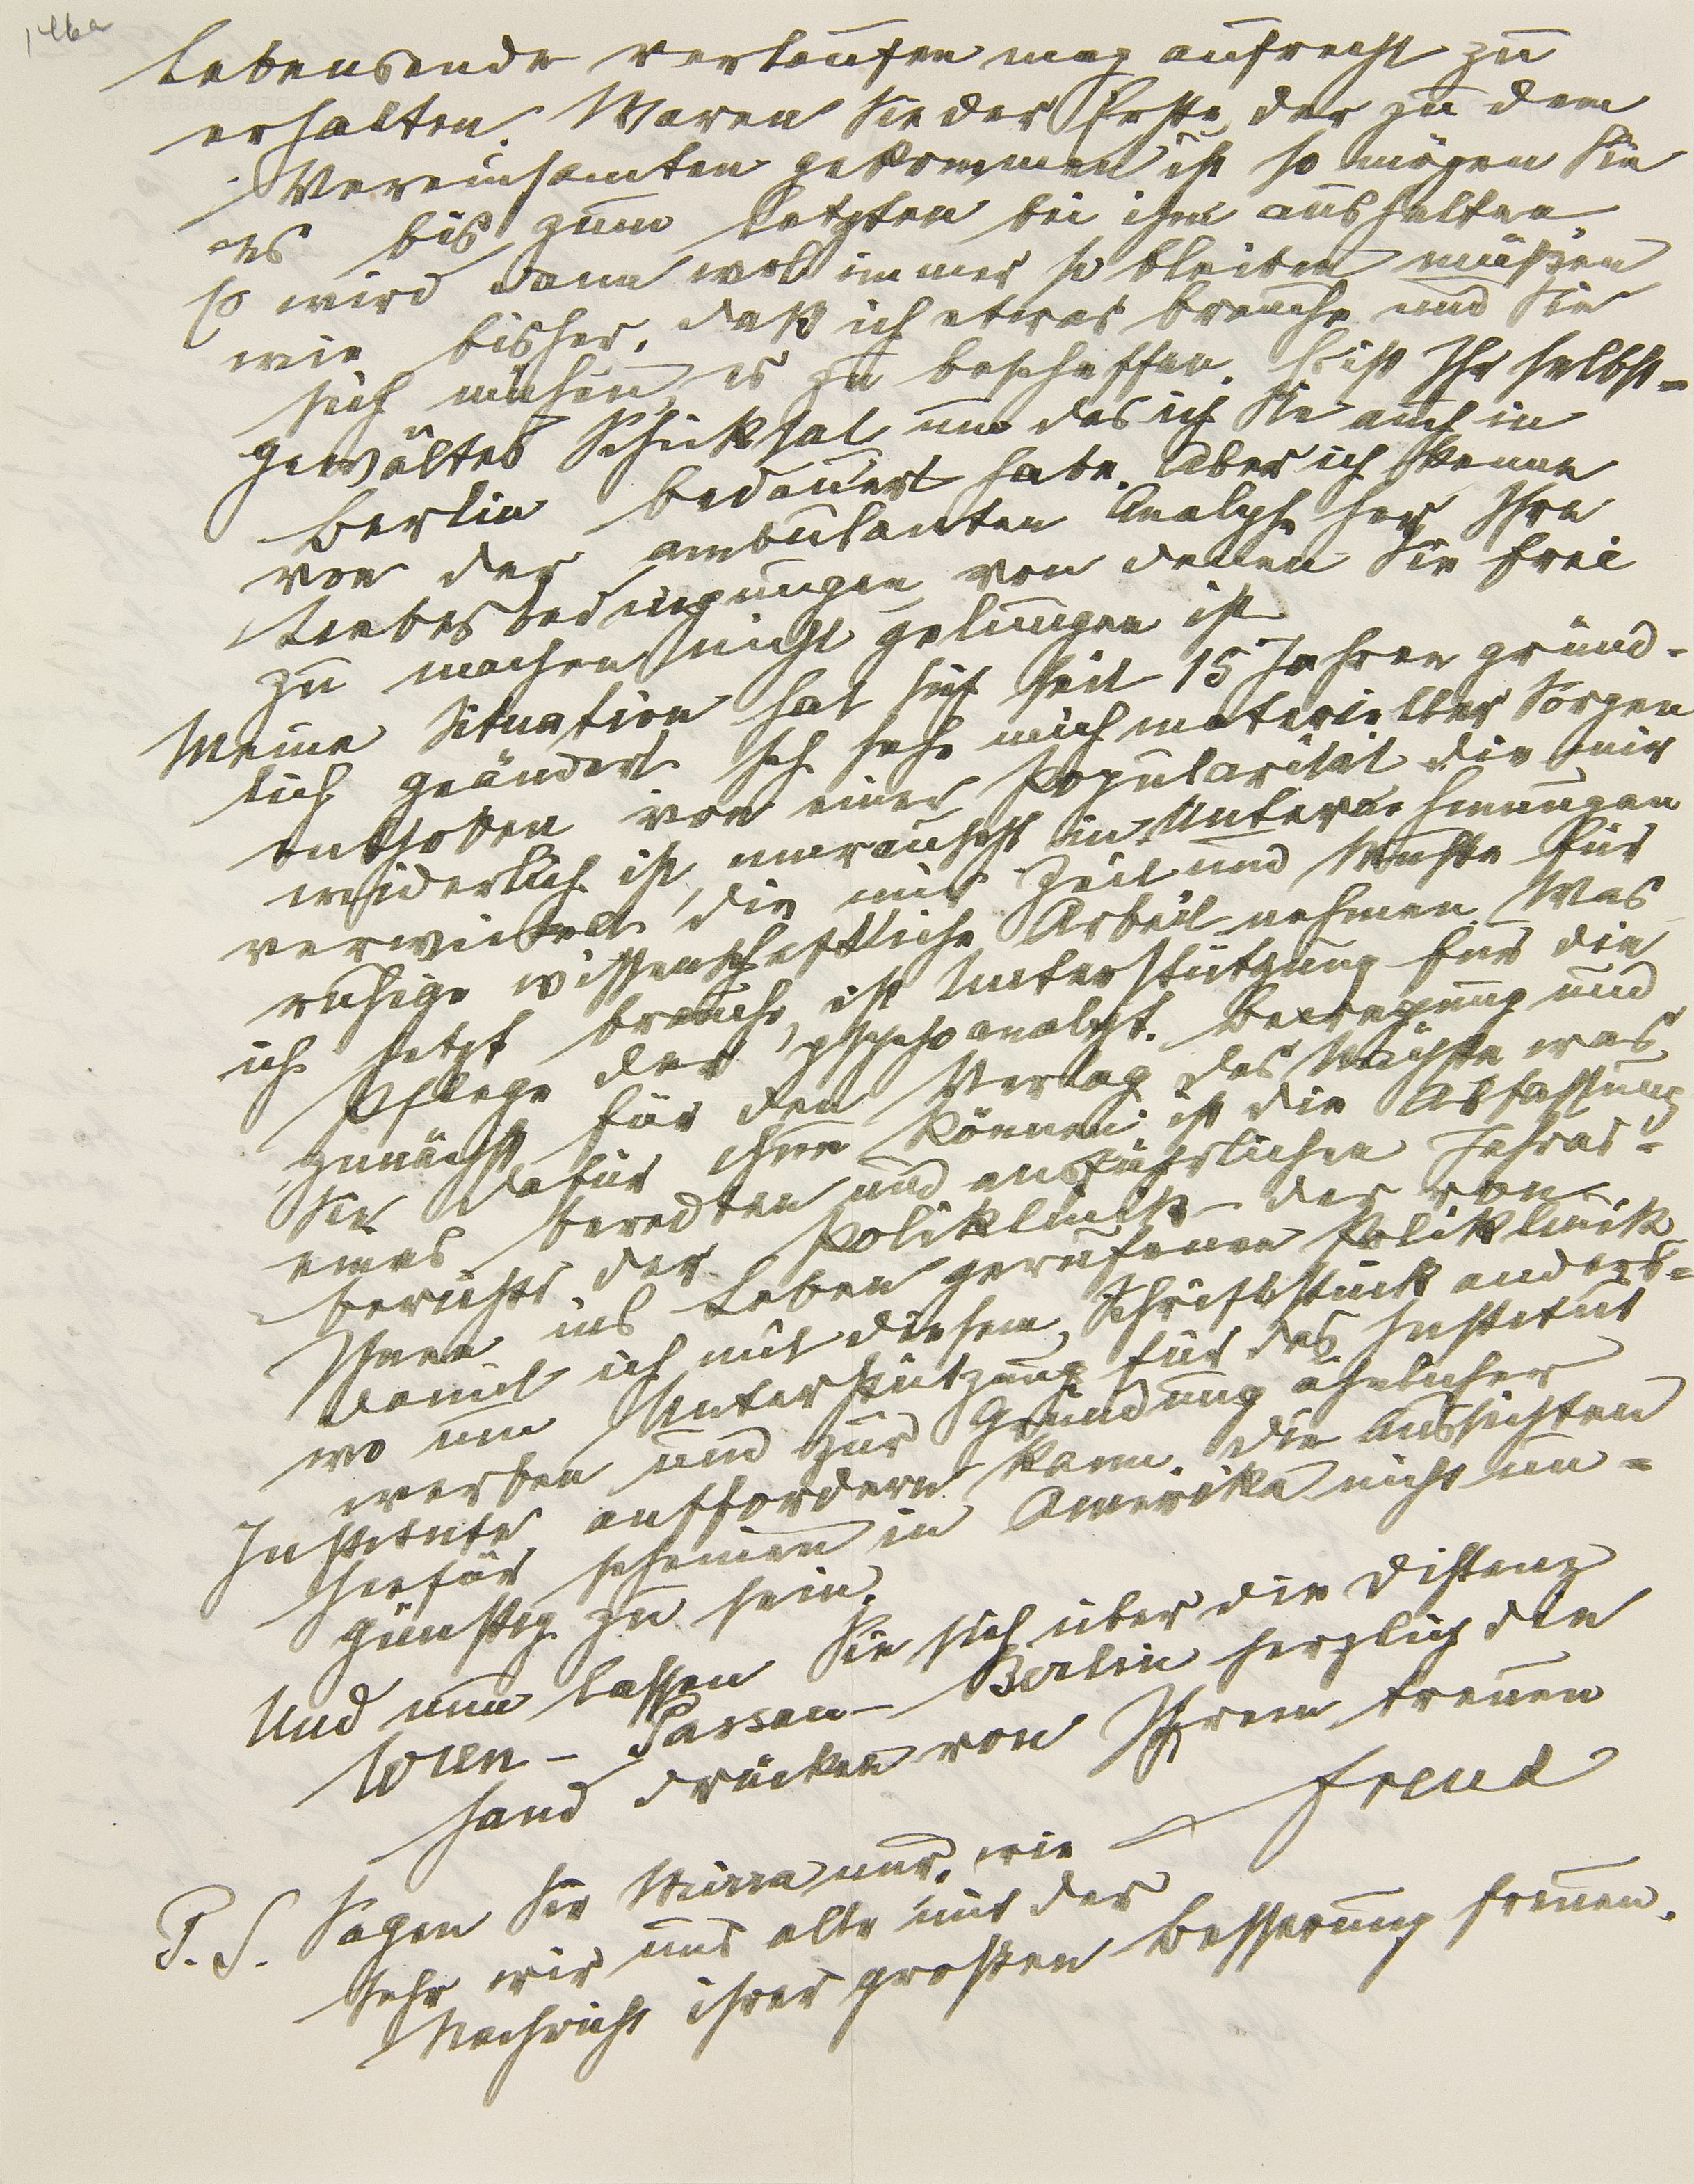 146a
Lebensende verlaufen mag aufrecht zu
erhalten. Waren Sie der Erste, der zu dem
Vereinsamten gekommen ist so mögen Sie
es bis zum letzten bei ihm aushalten.
Es wird dann wol immer so bleiben müßen
wie bisher, daß ich etwas brauche und Sie
sich mühen, es zu beschaffen. Es ist Ihr selbst=
gewältes Schicksal um das ich Sie auch in
Berlin bedauert habe. Aber ich kenne
von der ambulanten Analyse her Ihre
Liebesbedingungen von denen Sie frei
zu machen nicht gelungen ist
Meine Situation hat sich seit 15 Jahren gründ-
lich geändert. Ich sehe mich materieller Sorgen
enthoben von einer Popularität die mir
widerlich ist, umrauscht in Unternehmungen
verwickelt, die mir Zeit und Muße für
ruhige wissenschaftliche Arbeit nehmen. Was
ich jetzt brauche, ist Unterstützung für die
Pflege der psychoanalyt. Bewegung und
zunächst für den Verlag das Nächste was
Sie dafür thun können ist die Abfassung
eines beredten und ausführlichen Jahres=
berichts der Poliklinik – der von
Ihnen ins Leben gerufenen Poliklinik
damit ich mit diesem Schriftstück anders=
wo um Unterstützung für das Institut
werben und zur Gründung ähnlicher
Institute auffordern kann. Die Aussichten
hiefür scheinen in Amerika nicht un=
günstig zu sein.
Und nun lassen Sie sich über die Distanz
Wien – Passau – Berlin herzlich die
Hand drücken von Ihrem treuen
Freud
P.S. Sagen Sie Mirra nur, wie
sehr wir uns alle mit der
Nachricht ihrer großen Besserung freuen.